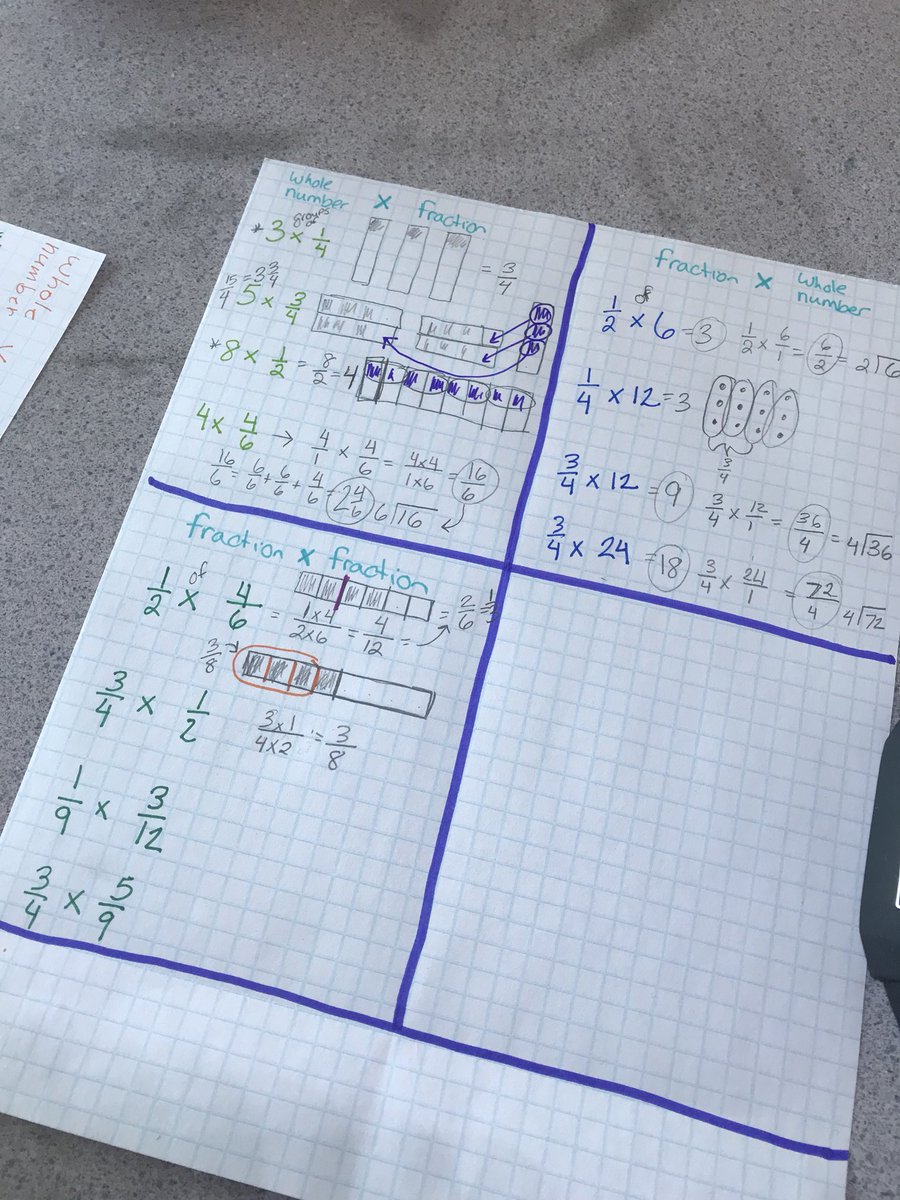 whole number × fraction
groups of
*3 × 1/4 = 3/4
15/4 = 3 3/4
5 × 3/4
*8 × 1/2 = 8/2 = 4
4 × 4/6 → 4/1 × 4/6 = 4×4/1×6 = 16/6
16/6 = 6/6 + 6/6 + 4/6 = 2 4/6 6⟌16
fraction × whole number
of
1/2 × 6 = 3 1/2 × 6/1 = 6/2 = 2⟌6
1/4 × 12 = 3
3/4
3/4 × 12 = 9 3/4 × 12/1 = 36/4 = 4⟌36
3/4 × 24 = 18 3/4 × 24/1 = 72/4 4⟌72
fraction × fraction
of
1/2 × 4/6 = 1×4/2×6 = 4/12 = 2/6 = 1/3
3/8
3/4 × 1/2
3×1/4×2 = 3/8
1/9 × 3/12
3/4 × 5/9
whole
number